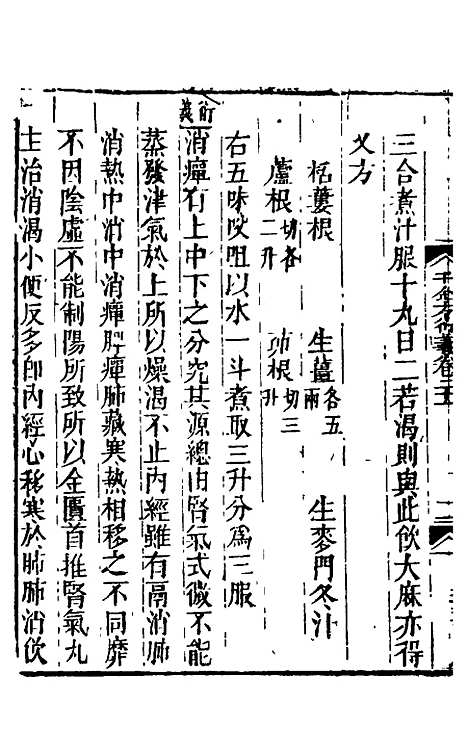 千金方衍義卷二十一
三合煮汁服十丸日二若渴則與此飲大麻亦得
又方
栝蔞根 生薑各五兩 生麥門冬汁
蘆根切各二升 茆根切三升
右五味㕮咀以水一斗煮取三升分爲三服
衍義
消癉有上中下之分究其源總由腎氣式微不能
蒸發津氣於上所以燥渴不止內經雖有鬲消肺
消熱中消中消癉脾癉肺藏寒熱相移之不同靡
不因陰虛不能制陽所致所以金匱首推腎氣丸
主治消渴小便反多卽內經心移寒於肺肺消飲